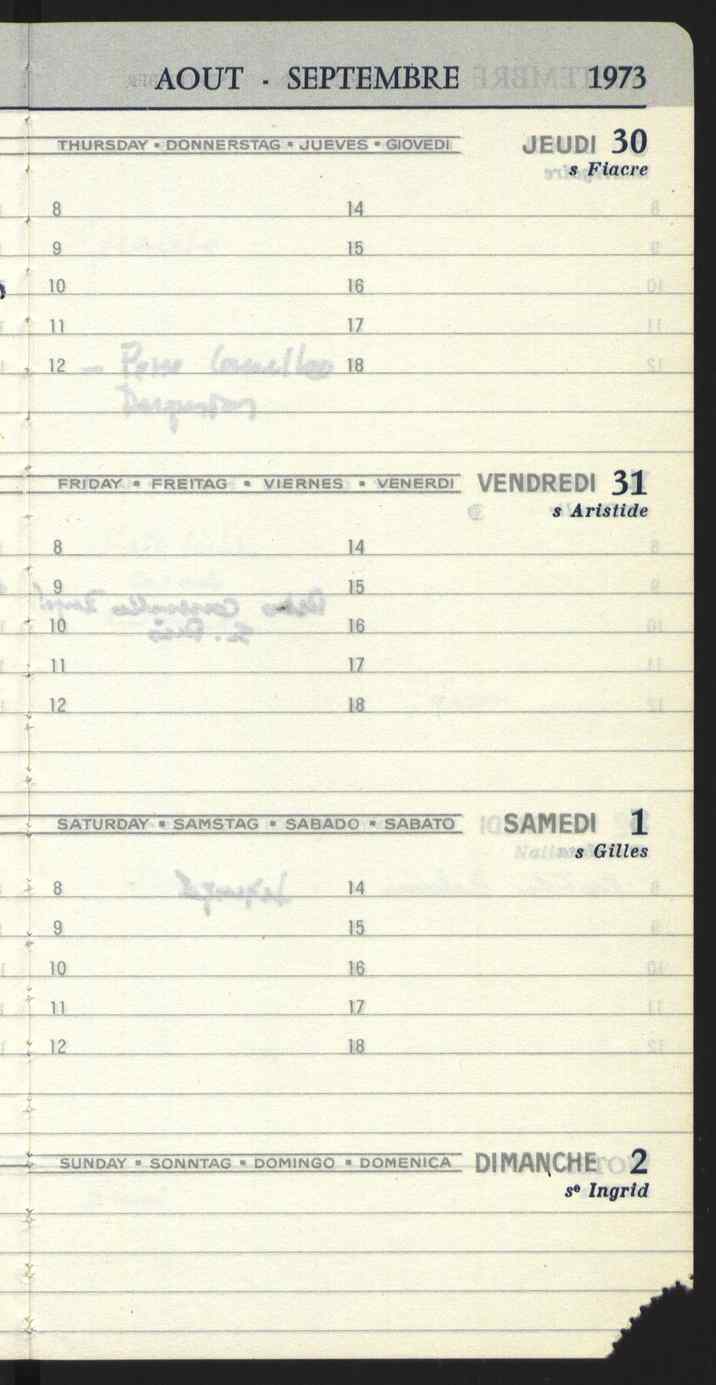 AOUT - SEPTEMBRE 1973
THURSDAY • DONNERSTAG • JUEVES • GIOVEDI JEUDI 30
s Fiacre
8 14
9 15
10 16
11 17
12 18
FRIDAY • FREITAG • VIERNES • VENERDI VENDREDI 31
s Aristide
8 14
9 15
10 16
11 17
12 18
SATURDAY • SAMSTAG • SABADO • SABATO SAMEDI 1
s Gilles
8 14
9 15
10 16
11 17
12 18
SUNDAY • SONNTAG • DOMINGO • DOMENICA DIMANCHE 2
sᵉ Ingrid